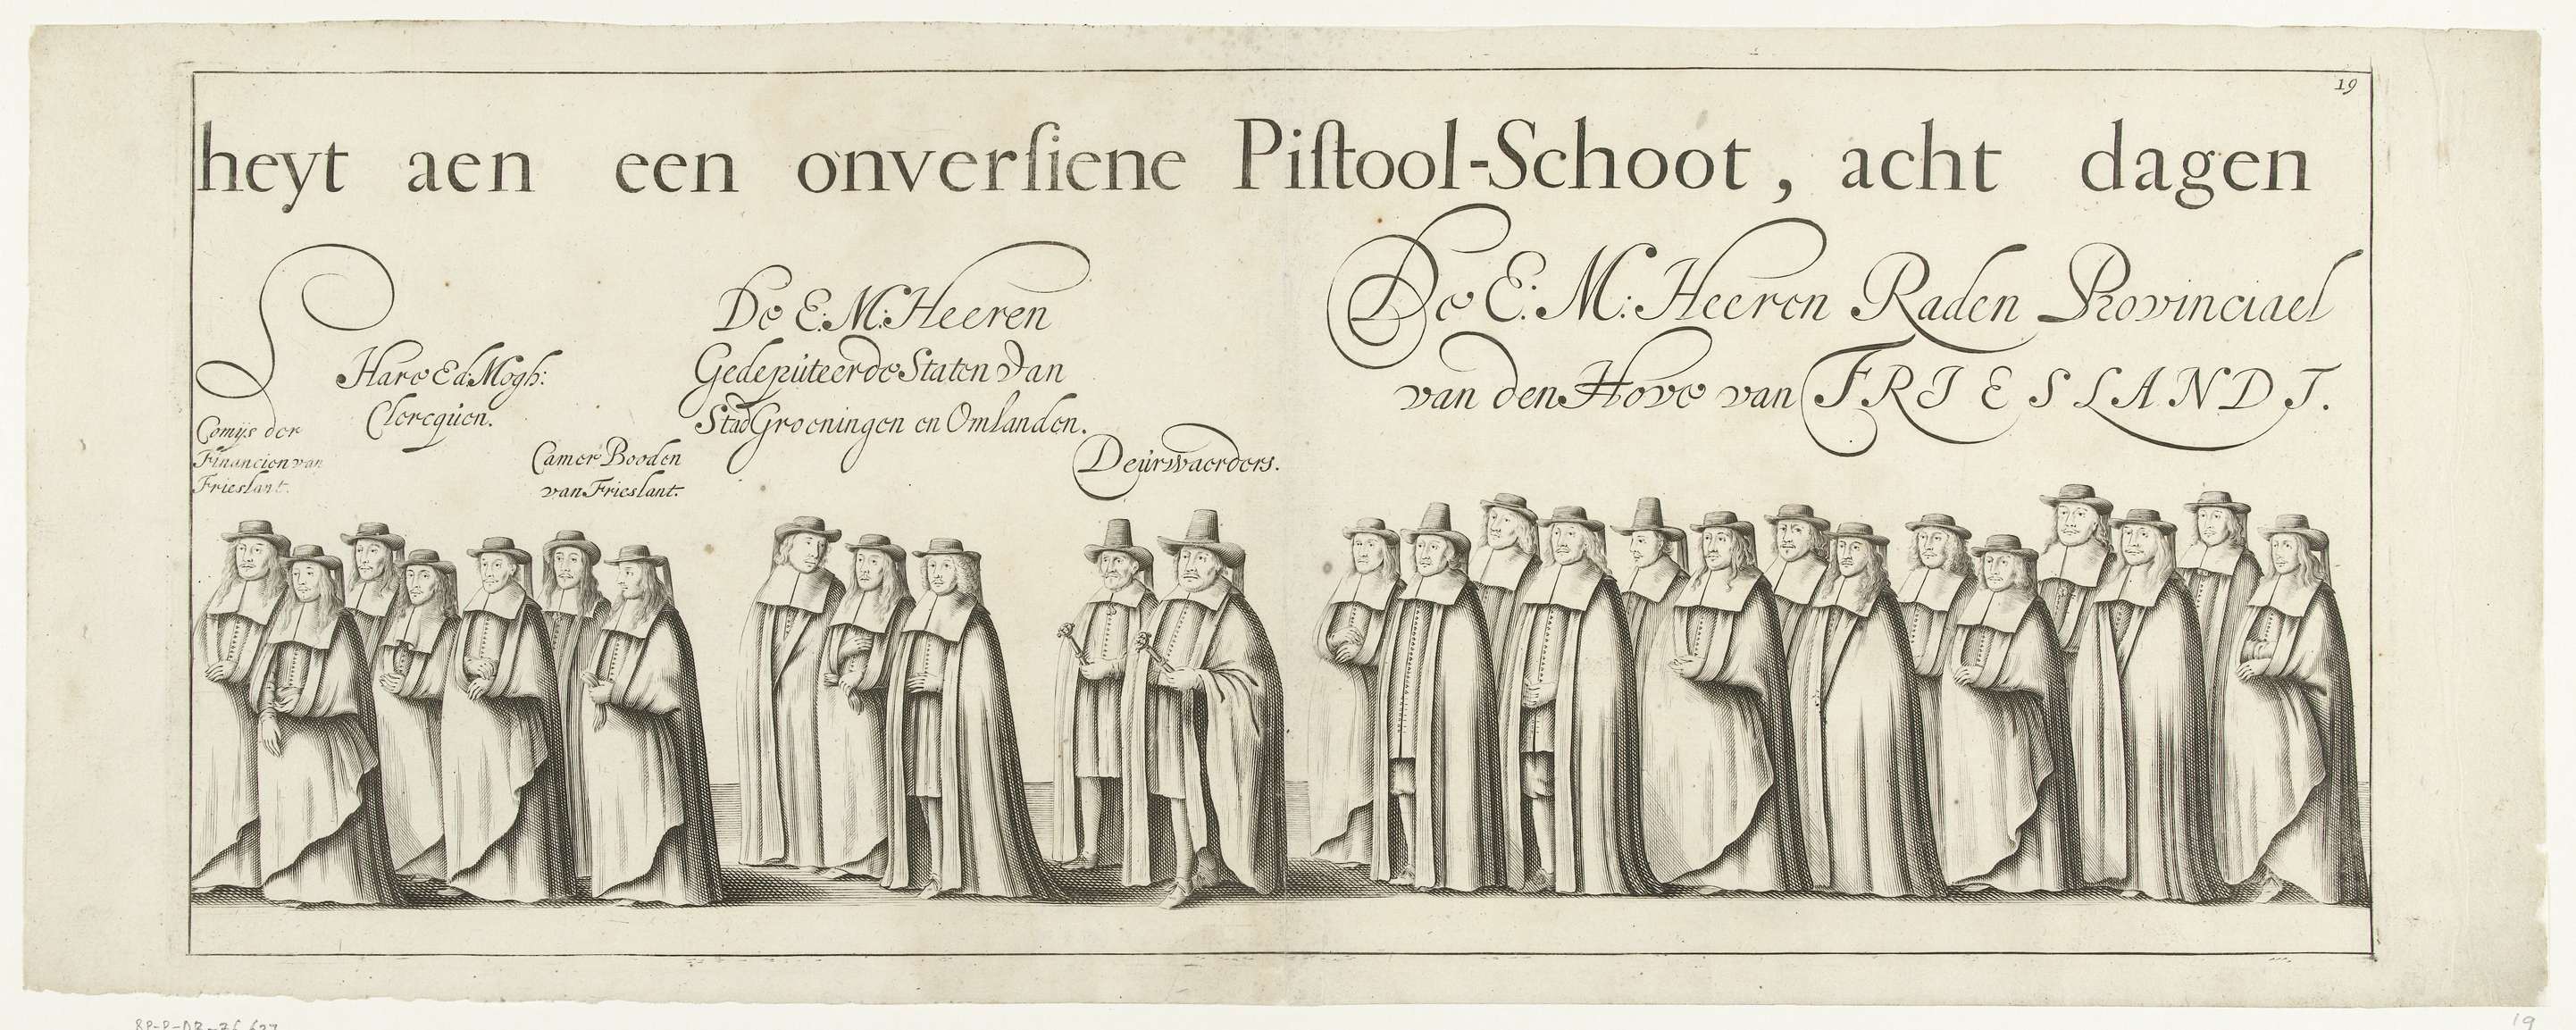 19
heyt aen een onverſiene Piſtool-Schoot, acht dagen
Comijs der
Financien van
Frieslant.
Hare Ed: Mogh:
Clercquen.
Camer Booden
van Frieslant.
De E: M: Heeren
Gedeputeerde Staten van
Stad Groeningen en Omlanden.
Deurwaerders.
De E: M: Heeren Raden Provinciael
van den Hove van FRIESLANDT.
19